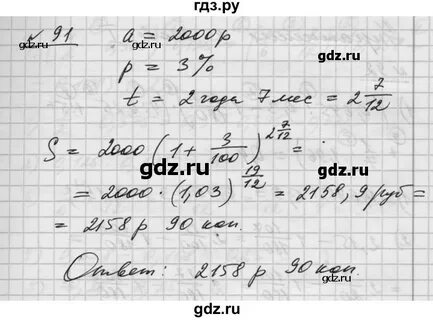 гдз.ру
№ 91
a = 2000р
p = 3%
t = 2 года 7 мес = 2 7/12
S = 2000 (1 + 3/100)^2 7/12 =
= 2000 · (1,03)^19/12 = 2158,9 руб =
= 2158 р 90 коп.
Ответ: 2158 р 90 коп.
gdz.ru gdz.ru gdz.ru
gdz.ru gdz.ru
gdz.ru gdz.ru gdz.ru
gdz.ru